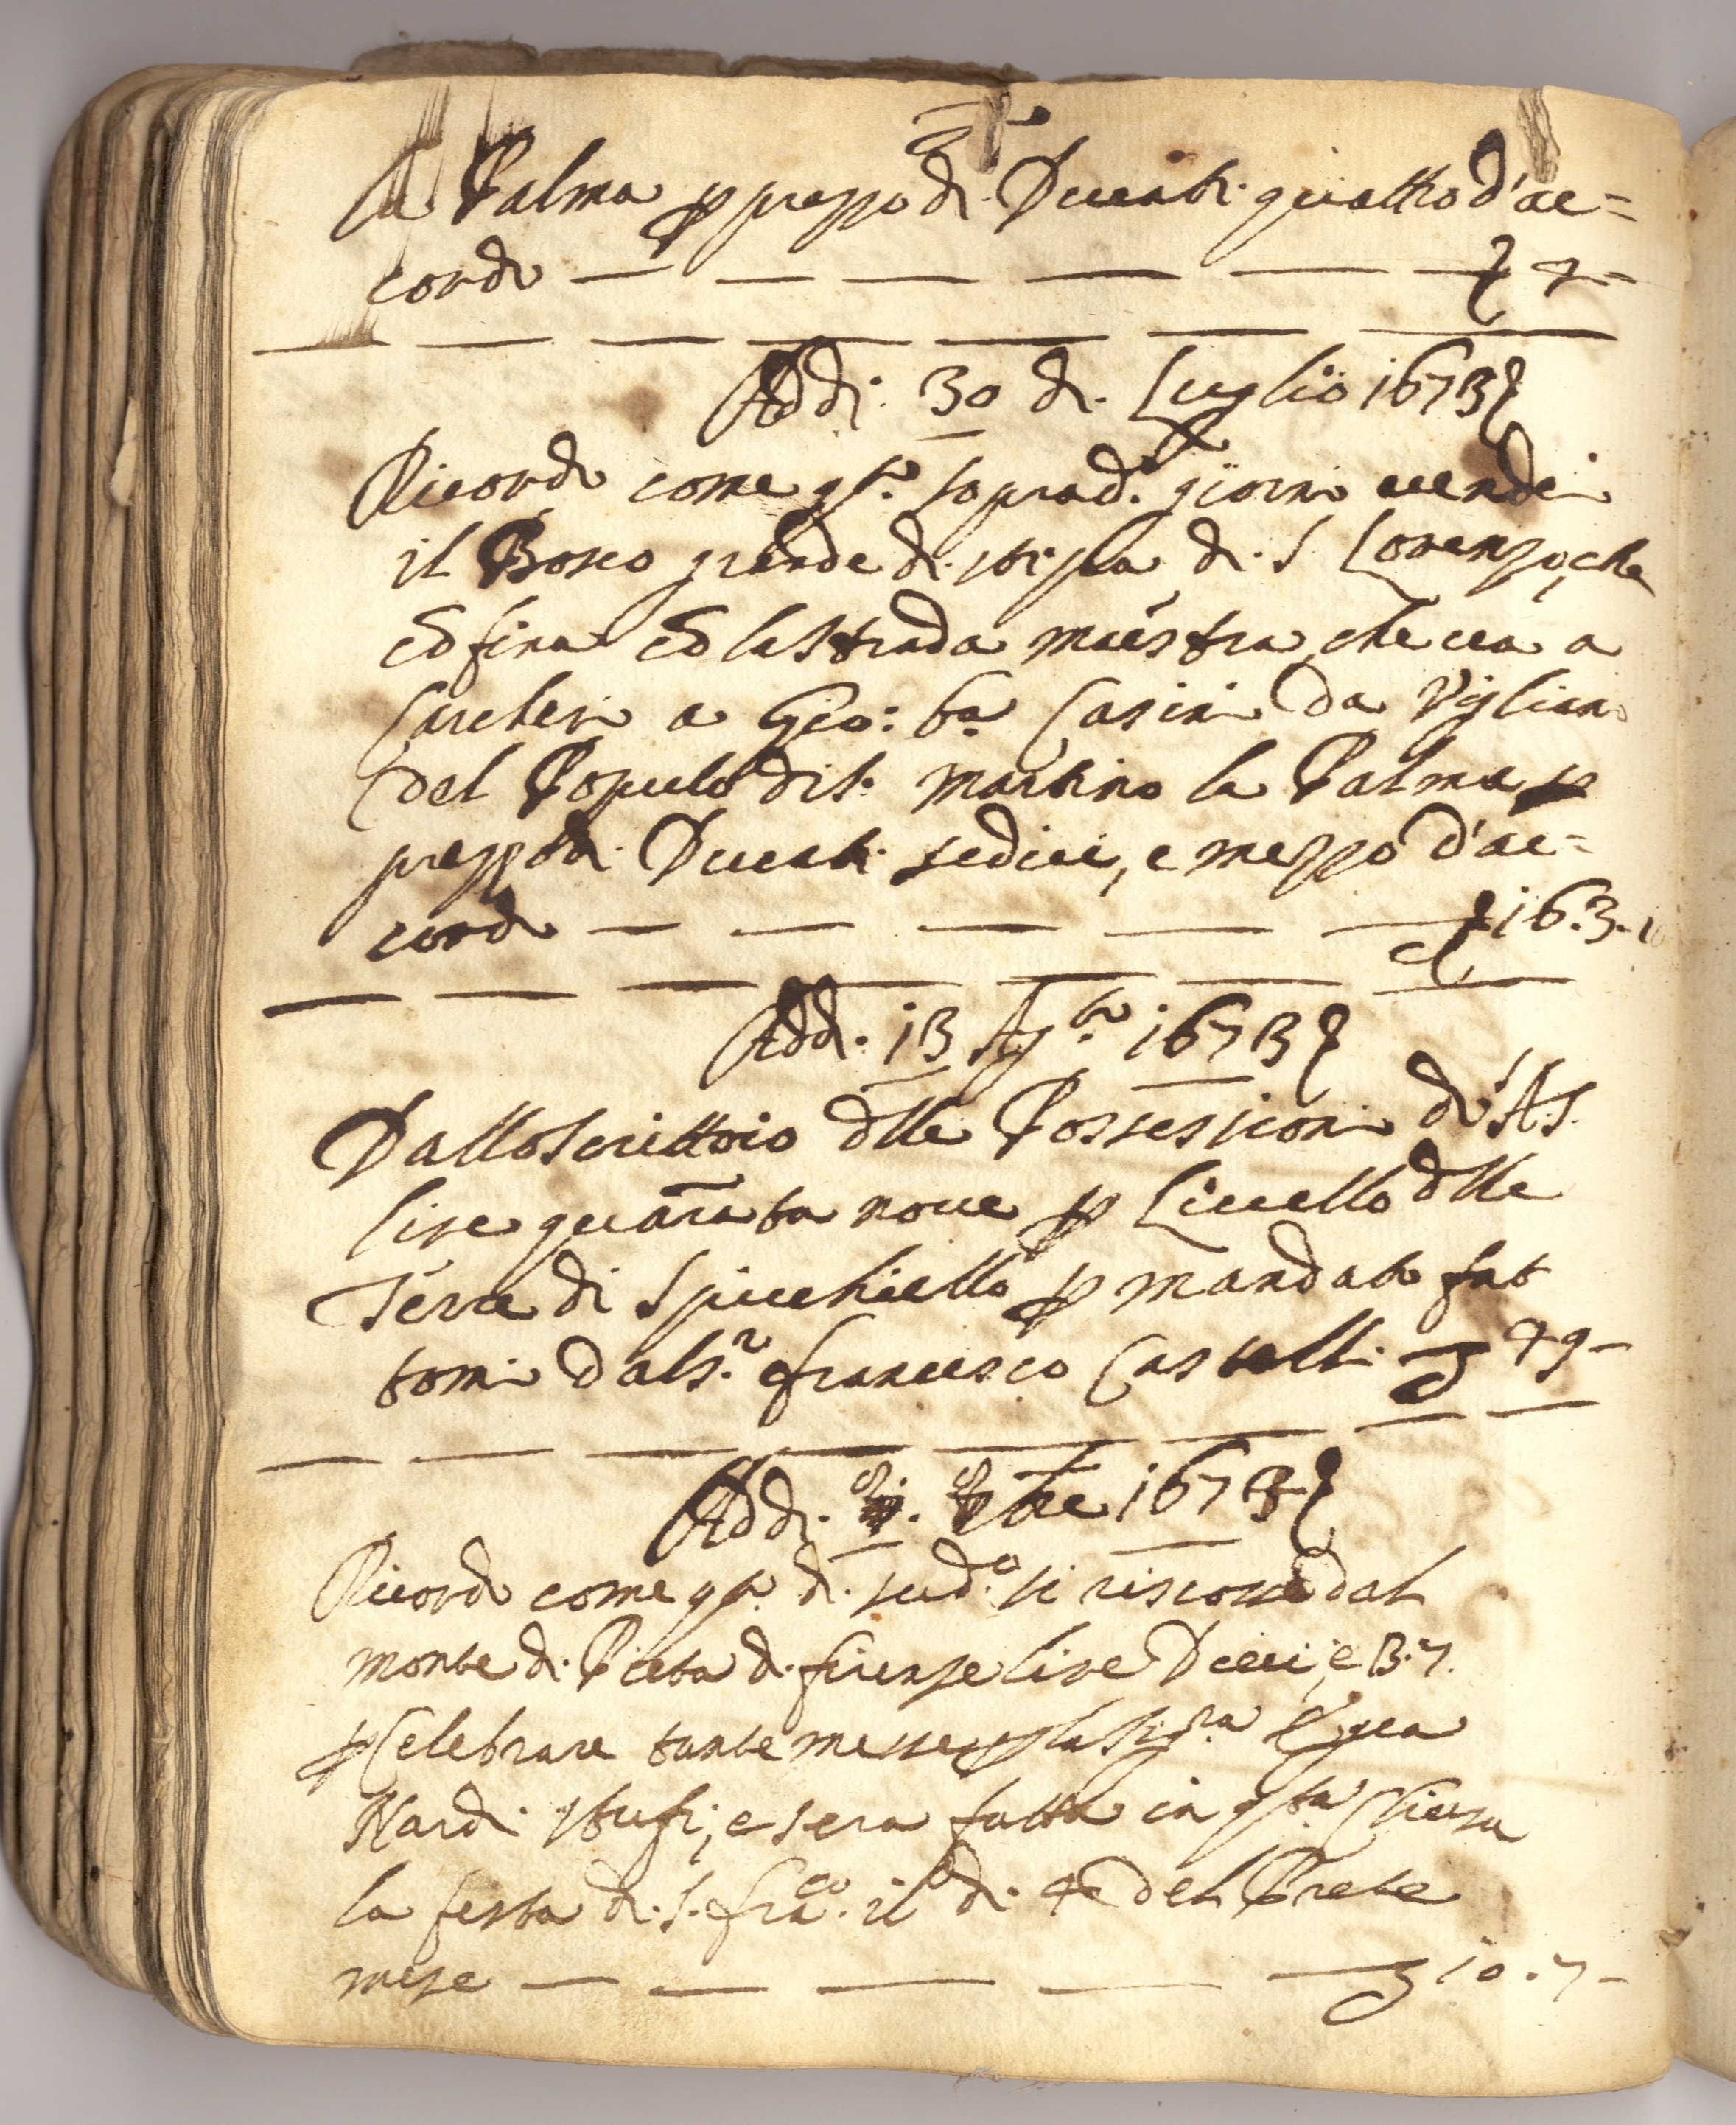 la Palma p prezzo di Ducati quattro d'ac=
cordo — — — — — — 4 =
Addi. 30 di Luglio 1673
Ricordo come qto. soprad.o giorno vendei
il Bosco grande di stipa di S. Lorenzo, che
cõfina cõ la strada maestra, che va a
Carcheri a Gio: ba Casini da Vigliano
del Popolo di S. Martino la Palma p
prezzo di Ducati sedici, e mezzo d'ac=
cordo — — — — — 16.3.10
Addi. 13 Ag.to 1673
Dallo scrittoio dlle Possessioni di S.A.S.
lire quarãta nove p Livello dlle
Terre di Spicchiello p mandato fat
tomi dal S.r Francesco Castelli 49 -
Addi. 1673
Ricordo come qto. di sud.o si riscosse dal
monte di Pieta di firenze lire Dieci, e 13.4.
p Celebrare tante messe p la Sig.ra
Nardi stufi, e sera fatta in qta Chiesa
la festa di S. frã.co il di 4 del Prete
mese — — — — — 10.7 -